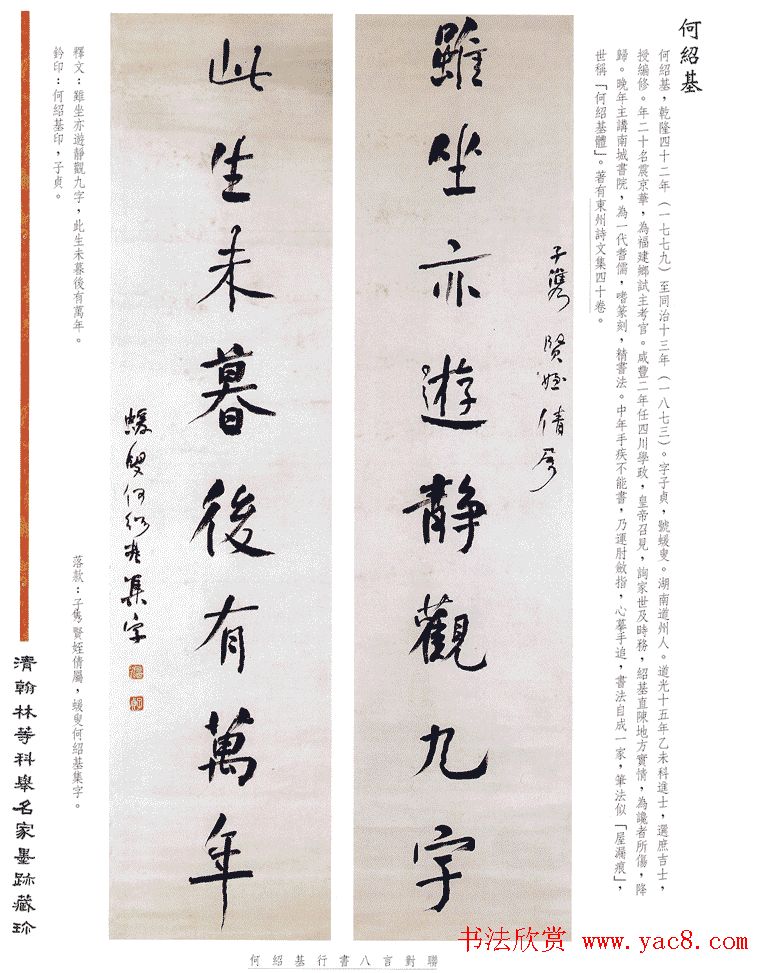 何紹基
何紹基，乾隆四十二年（一七七九）至同治十三年（一八七三）。字子貞，號蝯叟。湖南道州人。道光十五年乙未科進士，選庶吉士，
授編修。年二十名震京華，為福建鄉試主考官。咸豐二年任四川學政，皇帝召見，詢家世及時務，紹基直陳地方實情，為讒者所傷，降
歸。晚年主講南城書院，為一代耆儒，嗜篆刻，精書法。中年手疾不能書，乃運肘斂指，心摹手追，書法自成一家，筆法似「屋漏痕」，
世稱「何紹基體」。著有東州詩文集四十卷。
子雋 賢姪倩屬
雖坐亦遊靜觀九字
此生未暮後有萬年
蝯叟何紹基集字
釋文：雖坐亦遊靜觀九字，此生未暮後有萬年。
鈐印：何紹基印，子貞。
落款：子雋賢姪倩屬，蝯叟何紹基集字。
清翰林等科舉名家墨跡藏珍
何紹基行書八言對聯
书法欣赏 www.yac8.com